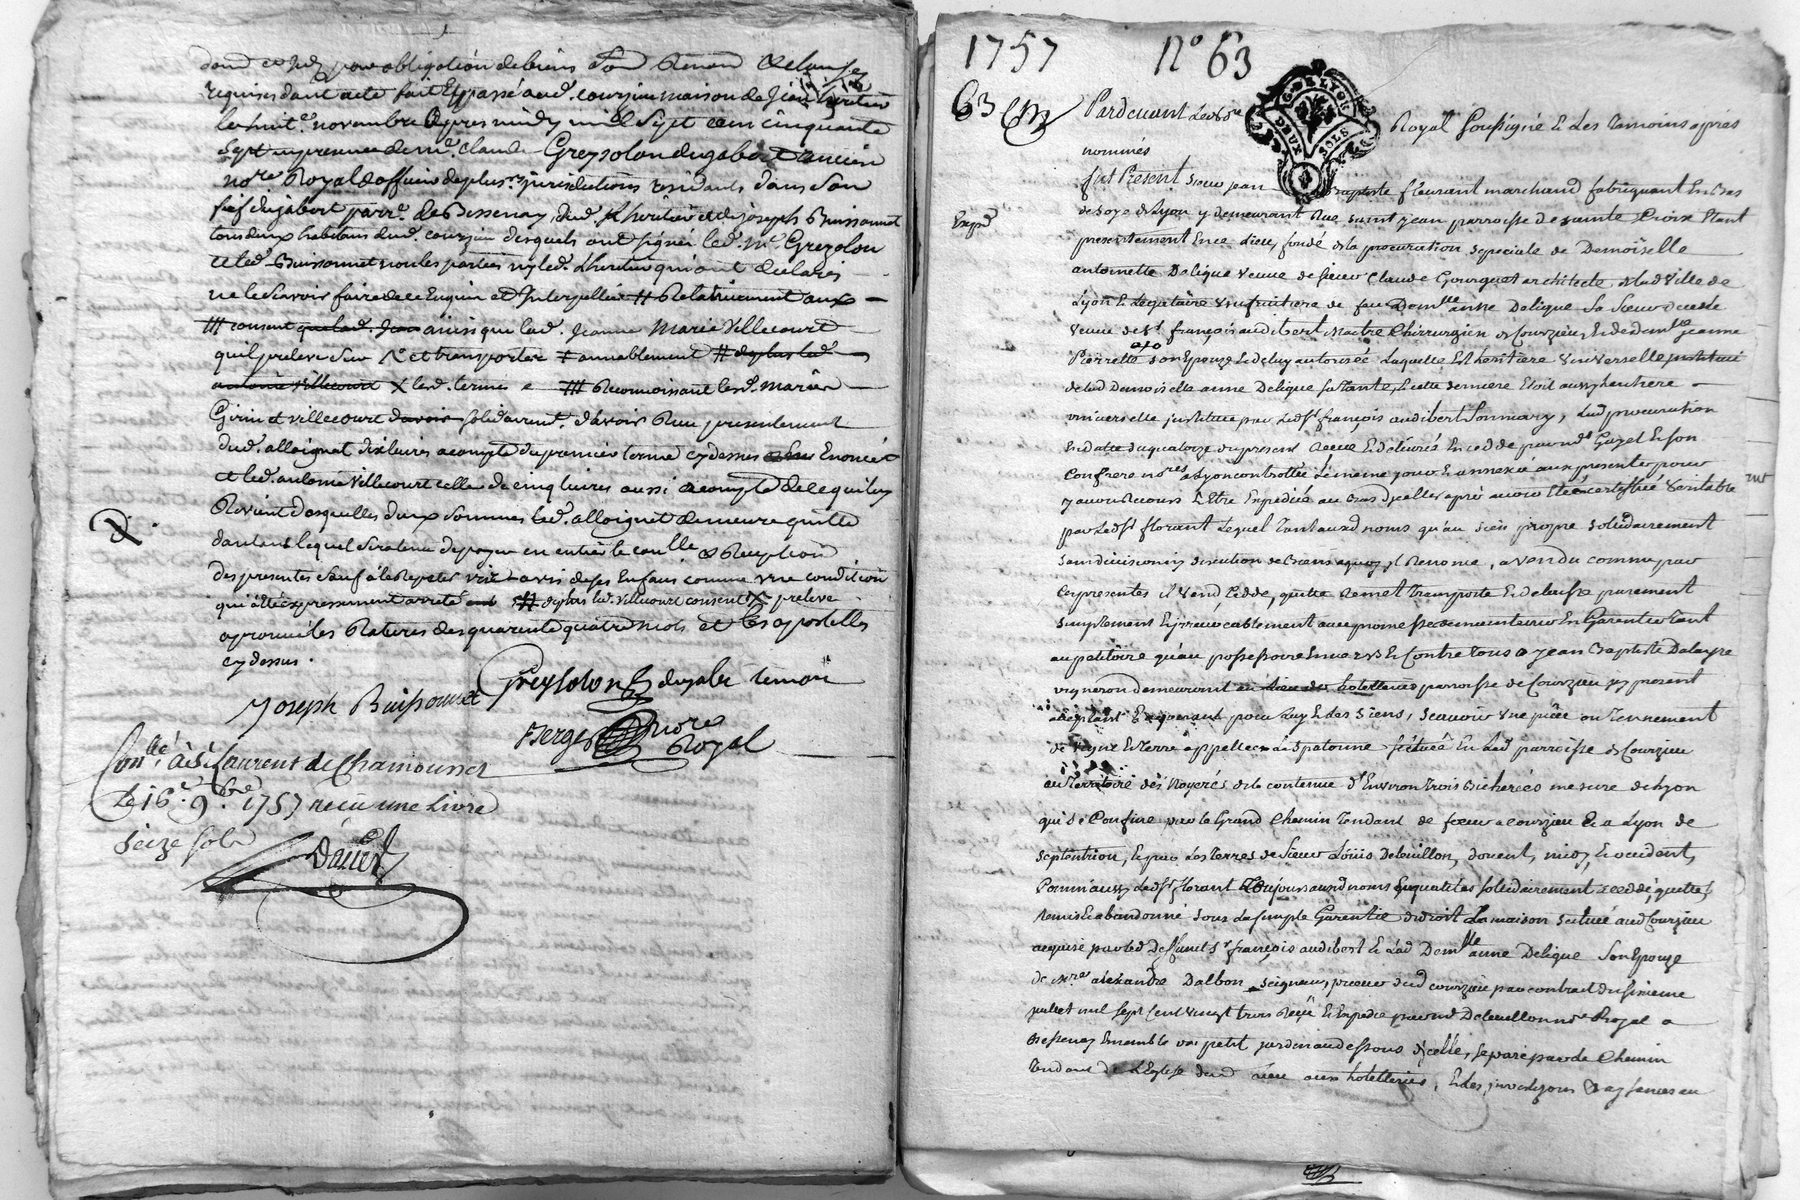 requises dont acte fait Et passé aud. courzieu maison de Jean
le huit.e novembre après midy mil sept cent cinquante
sept en presence de m.e Claude Greysolon dujabert ancien
no.re Royal & officier de plus.rs jurisdictions residant dans son
fief dujabert parr.e de Bessenay, & de joseph Buissonnet
tous deux habitans dud. courzieu desquels ont signé led. m.e Greysolon
et led. Buissonnet non les parties ny led. Lheritier qui ont declarés
ne le scavoir faire de ce Enquis et Interpellés # Relativement aux
/// consent ainsi que lad. Jeanne Marie Villecourt
qu'il preleve sur et transporter # annablement #
X led. termes e /// Reconnoissant lesd. mariés
Girin et villecourt solidairem.t d'avoir Reçu presentement
dud. alloignet dix livres acompte du premier terme cydessus Enoncé
et led. antoine Villecourt celle de cinq livres aussi acompte de ce qui luy
Revient desquelles deux sommes led. alloignet demeure quitte
dautant lequel sera tenu de payer en entier le conlle & Reception
des presentes sauf à le Repeter vis à vis de ses Enfans comme une condition
qui a été expressement arreté # deplus led. Villecourt consent X preleve
aprouvé les Ratures des quarente quatre mots et les apostilles
cydessus.
Joseph Buissonnet Greysolon dujabert temoin
Berger nore Royal
Conllé à St Laurent de Chamousset
Le 16.e 9.bre 1757 reçu une Livre
Seize sols
1757 No 63
63
G. DE LYON DEUX SOLS
Pardevant Royal soussigné & Les temoins après
nommés
fut Present sieur jean Baptiste fleurant marchand fabriquant En bas
de soye de Lyon y demeurant Rue saint jean parroisse de sainte Croix Etant
Expé
presentement En ce Lieu, fondé de la procuration speciale de Demoiselle
antoinette Daligue veuve de sieur Claude Gourguet architecte, de lad Ville de
Lyon & Legataire Usufruitiere de feu Demlle anne Deligue sa sœur
veuve de Sr. françois audibert Maitre Chirurgien de Courzieu, & de demlle jeanne
Pierrette son Epouze de luy autorisée Laquelle Est heritiere Universelle
de lad Demoiselle anne Deligue sa Tante, & cette derniere Etoit aussy heritiere
universelle instituée par Ledst françois audibert son mary, Lad procuration
En datte du quatorze du present Reçue & delivrée En cedde par mes Gayet & son
Confrere nores a Lyon controllée le meme jour & annexée aux presentes pour
y avoir Recours & Etre Expediée au bas d'ycelles après avoir été certiffiée Veritable
par Ledst florant Lequel Tant auxd noms qu'au sien propre solidairement
sans division ni discution de biens aquoy il Renonce, a vendu comme par
ces presentes il Vend, cedde, quitte Remet Transporte & delaisse purement
simplement & irrevocablement avec promesse de maintenir & Garentir Tant
au petitoire qu'au possessoire Envers & Contre Tous a jean Baptiste Dalayre
vigneron demeurant parroisse de Courzieu, y present
aceptant & aquerant pour Luy & des siens, scavoir Une piece ou Tennement
de vigne & Terre appellée située En Lad parroisse de Courzieu
au Territoire des Noyerés de la contenue d'Environ Trois bicherées mesure de Lyon
qui se Confine par le Grand Chemin Tendant de a Courzieu & a Lyon de
septentrion, & par Les Terres de Sieur Loüis Deleuillon, d'orient, midy & occident,
Comm'aussy Ledst florant Toujours auxd noms & qualités solidairement a ceddé, quitté
Remis & abandonné sous La simple Garentie de droit La maison située aud Courzieu
acquise par led Deffunct Sr françois audibert & Lad Demlle anne Deligue son Epouze
de Mre alexandre Dalbon seigneur, prieur dud courzieu par contract du sixieme
juillet mil sept Cent Vingt trois Reçu & Expedié par me Deleuillon nore Royal a
Bessenay Ensemble un petit jardin audessous d'ycelle, separé par le Chemin
Tendant de L'Eglise dud Lieu aux hotelleries, & des &